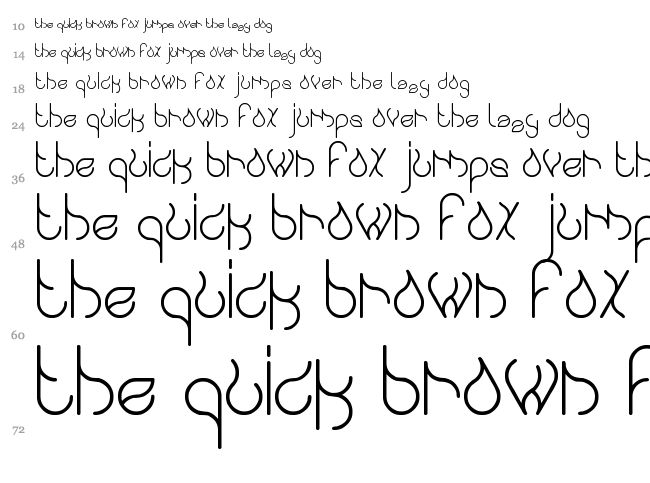 10 the quick brown fox jumps over the lazy dog
14 the quick brown fox jumps over the lazy dog
18 the quick brown fox jumps over the lazy dog
24 the quick brown fox jumps over the lazy dog
36 the quick brown fox jumps over th
48 the quick brown fox jump
60 the quick brown fox
72 the quick brown f